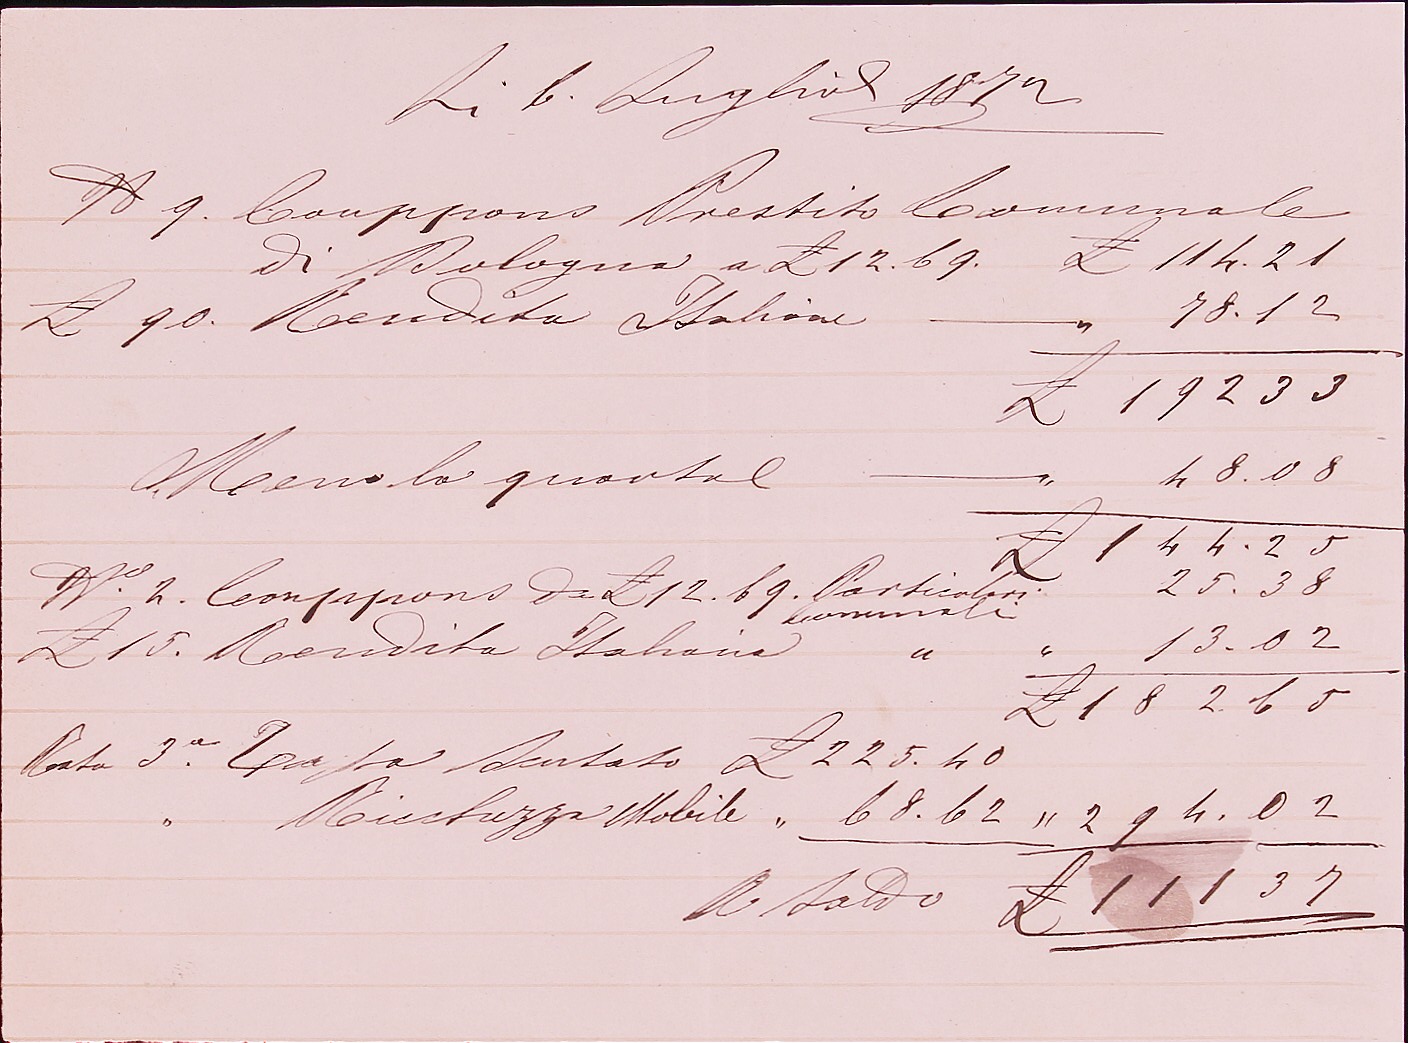 Li 6. Luglio 1872
N 9. Couppons Prestito Comunale
di Bologna a £ 12.69. £ 114.21
£ 90. Rendita Italiana — " 78.12
£ 192 33
Meno la quarta — " 48.08
£ 144.25
N.o 2. Couppons da £ 12.69. Particolari 25.38
Comunali
£ 15. Rendita Italiana " " 13.02
£ 182.65
Rata 3.a Tassa £ 225.40
" Ricchezza Mobile " 68.62 " 294.02
A Saldo £ 111 37